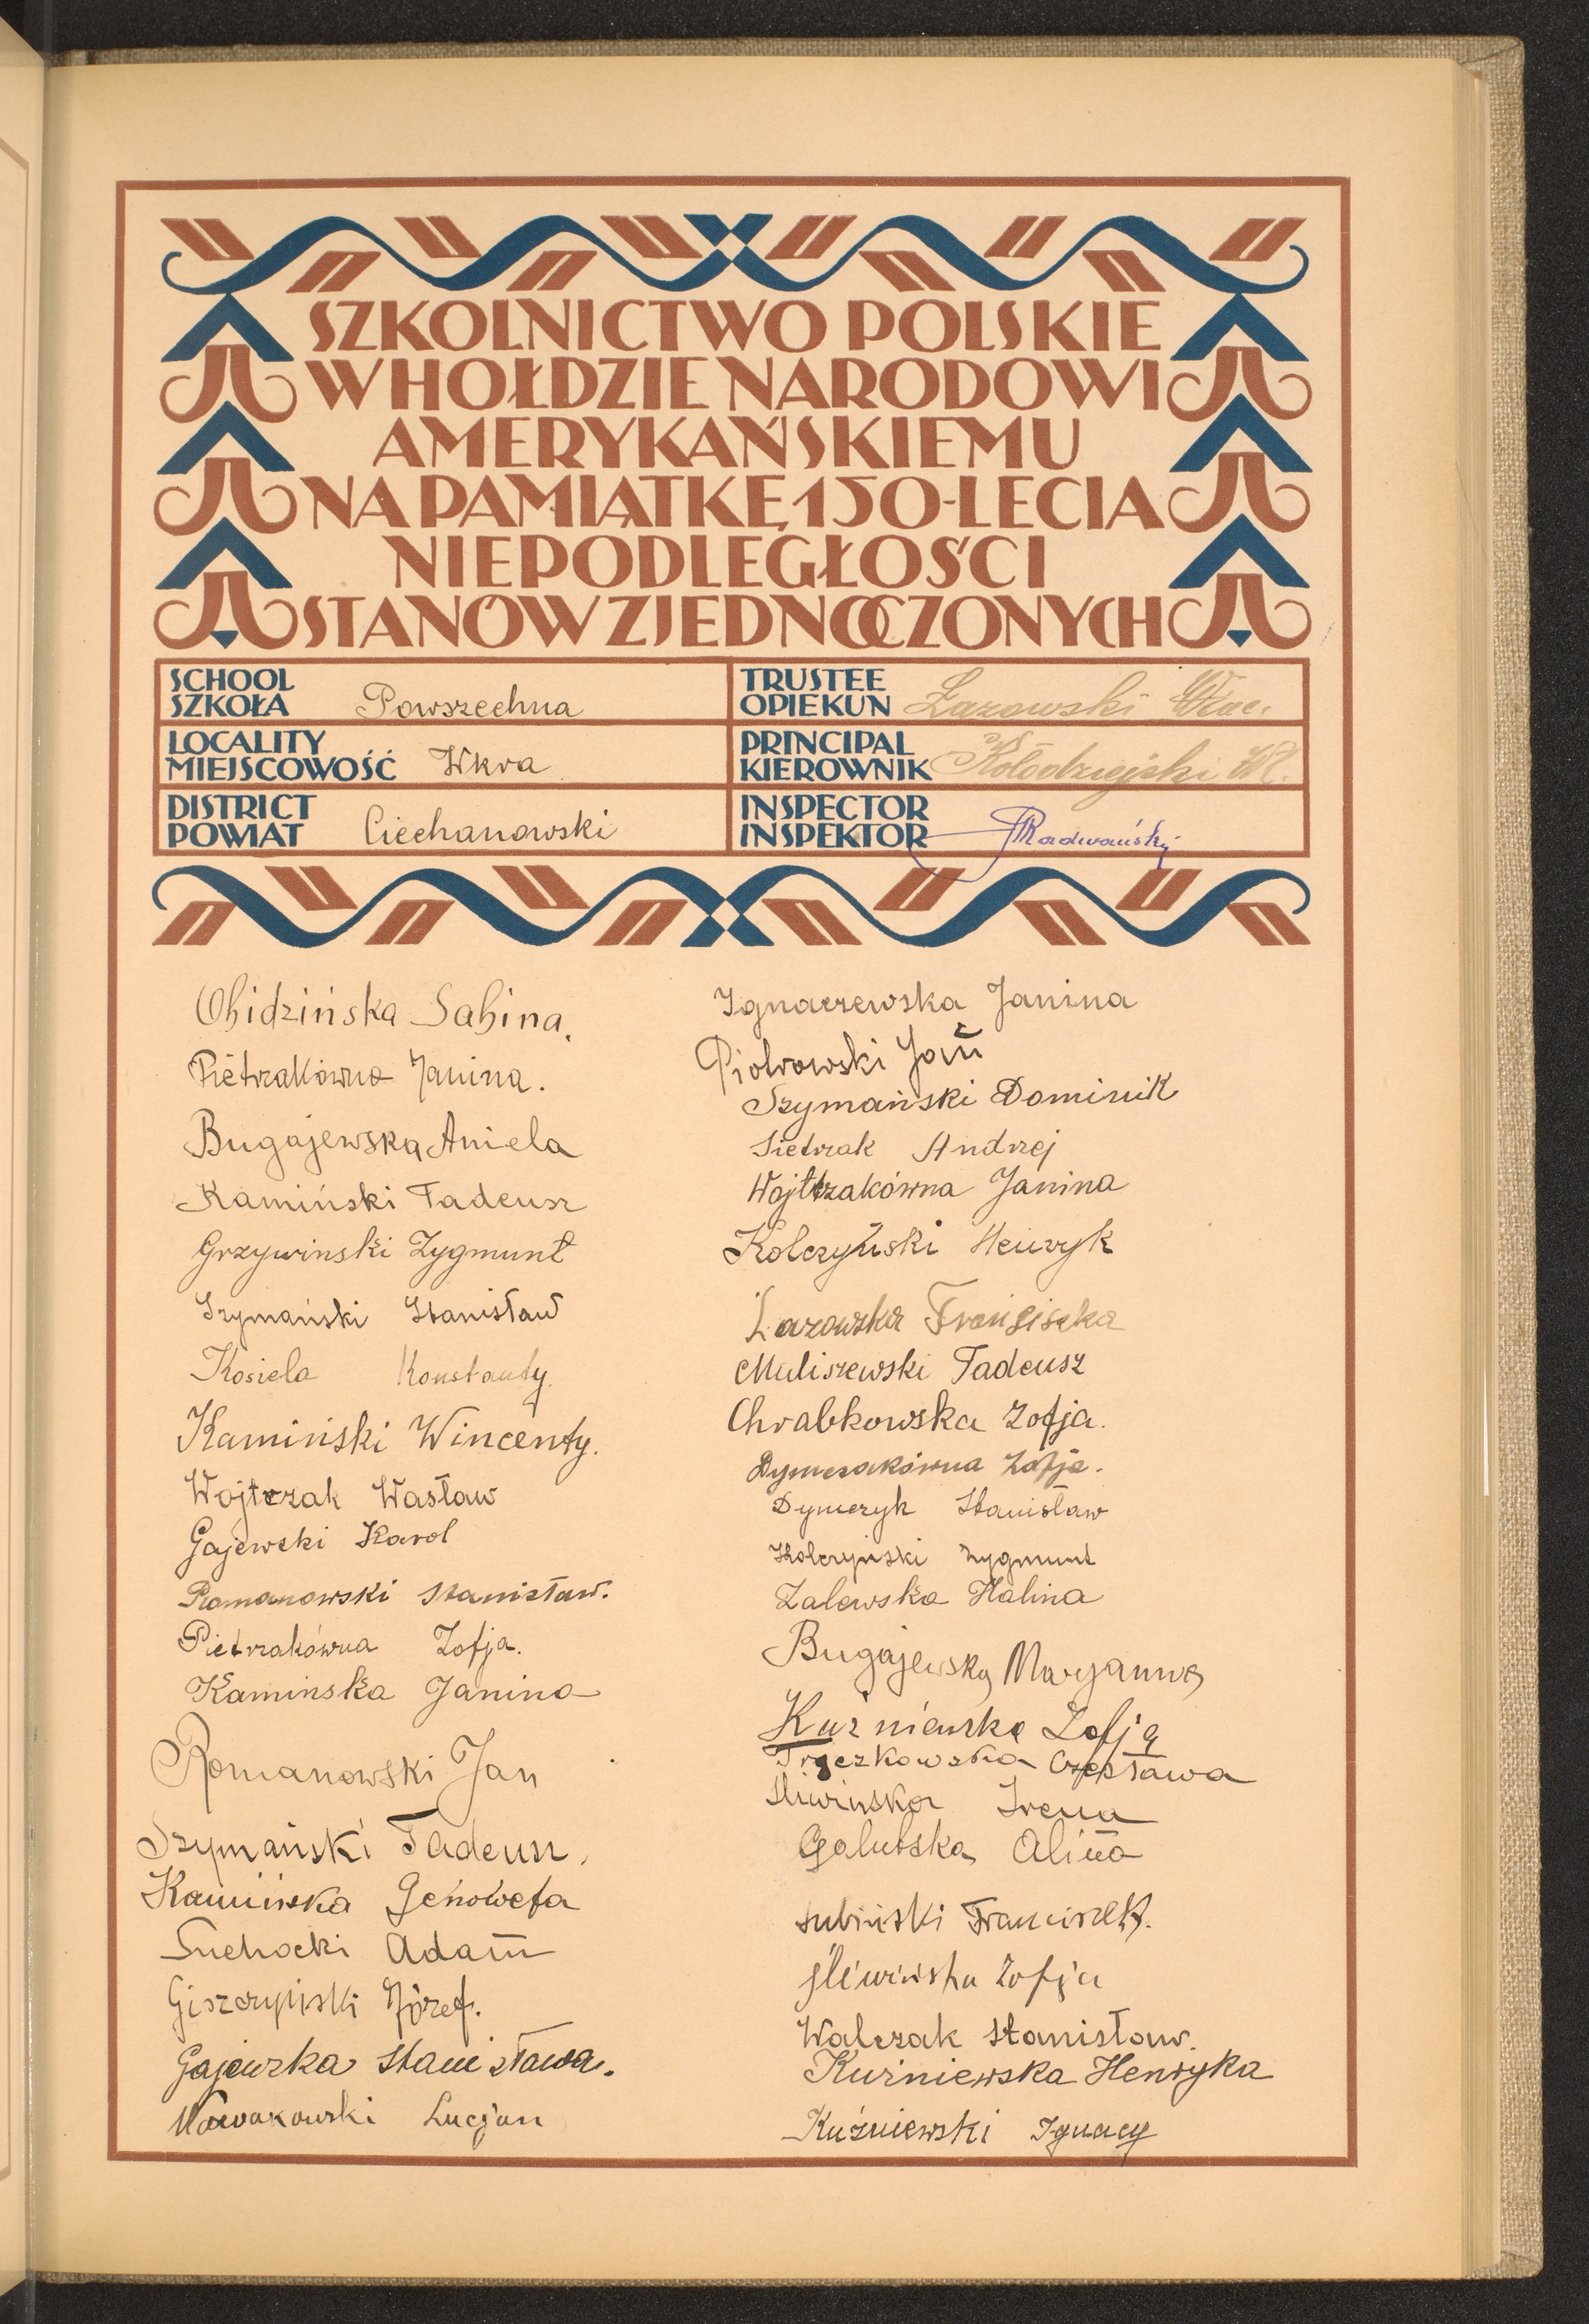 SZKOLNICTWO POLSKIE
W HOŁDZIE NARODOWI
AMERYKAŃSKIEMU
NA PAMIĄTKĘ 150-LECIA
NIEPODLEGŁOŚCI
STANÓW ZJEDNOCZONYCH
SCHOOL
SZKOŁA Powszechna
TRUSTEE
OPIEKUN Łazowski Wac.
LOCALITY
MIEJSCOWOŚĆ Wkra
PRINCIPAL
KIEROWNIK Kołodziejski Wł.
DISTRICT
POWIAT Ciechanowski
INSPECTOR
INSPEKTOR Radwański
Obidzińska Sabina.
Pietrzakówna Janina.
Bugajewska Aniela
Kamiński Tadeusz
Grzywinski Zygmunt
Szymański Stanisław
Kosiela Konstanty.
Kamiński Wincenty.
Wojtczak Wasław
Gajewski Karol
Romanowski Stanisław.
Pietrzakówna Zofja.
Kaminska Janina
Romanowski Jan
Szymański Tadeusz.
Kamińska Genowefa
Suchocki Adam
Giszczyński Józef.
Gajewska Stanisława.
Nowakowski Lucjan
Ignaczewska Janina
Piotrowski Jan
Szymański Dominik
Pietrzak Andrzej
Wojtczakówna Janina
Kolczyński Henryk
Łazowska Franciszka
Maliszewski Tadeusz
Chrabkowska Zofja.
Dymczakówna Zofja.
Dymczyk Stanisław
Kolczyński Zygmunt
Zalewska Halina
Bugajewska Maryanna
Kuźniewska Zofja
Trzczkowska Czesława
Śliwińska Irena
Alina
Lubiński Franciszek.
Śliwińska Zofja
Walczak Stanisław.
Kuźniewska Henryka
Kuźniewski Ignacy